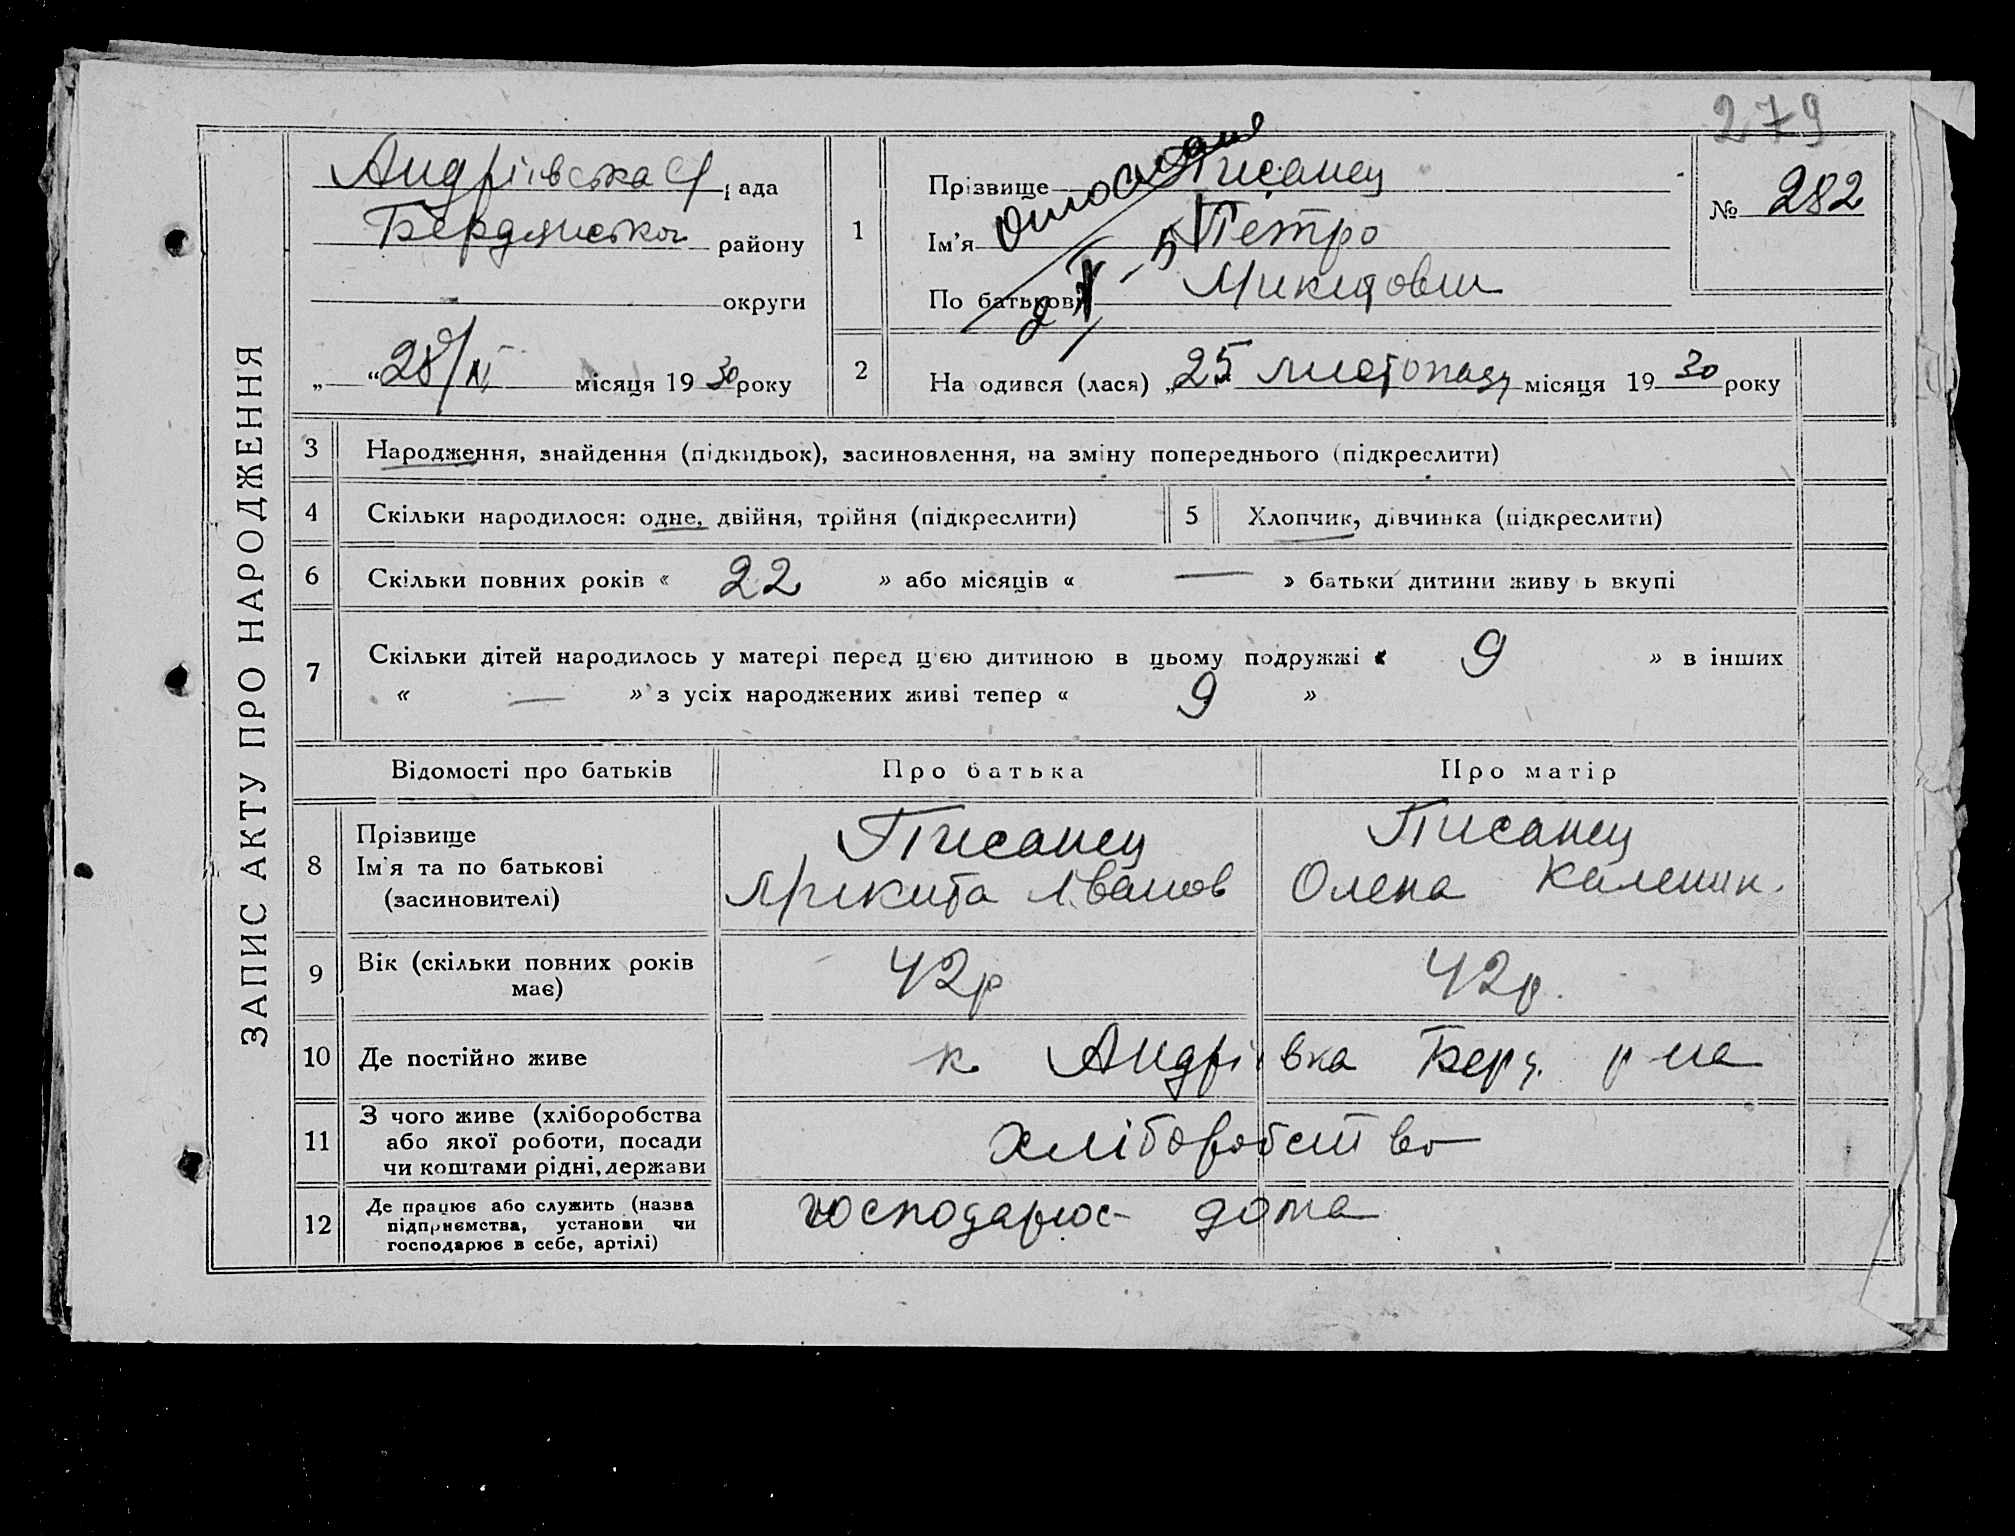 279
ЗАПИС АКТУ ПРО НАРОДЖЕННЯ
Андріівська С/рада
Бердянська району
округи
„ “ 28/XI місяця 1930 року
1
Прізвище Писанец
Ім'я Петро
По батькові Микитович
№ 282
2 На одився (лася) „ 25 листопада місяця 1930 року
3 Народження, знайдення (підкидьок), засиновлення, на зміну попереднього (підкреслити)
4 Скільки народилося: одне, двійня, трійня (підкреслити) 5 Хлопчик, дівчинка (підкреслити)
6 Скільки повних років « 22 » або місяців « — » батьки дитини живу ь вкупі
7 Скільки дітей народилось у матері перед цією дитиною в цьому подружжі « 9 » в інших
« — » з усіх народжених живі тепер « 9 »
Відомості про батьків Про батька Про матір
8 Прізвище Писанец Писанец
Ім'я та по батькові Микита Іванов Олена Каленик.
(засиновителі)
9 Вік (скільки повних років має) 42р 42р.
10 Де постійно живе Андрівка Берд. р на
11 З чого живе (хліборобства
або якої роботи, посади хліборобство
чи коштами рідні, держави
12 Де працює або служить (назва господарює дома
підприємства, установи чи
господарює в себе, артілі)